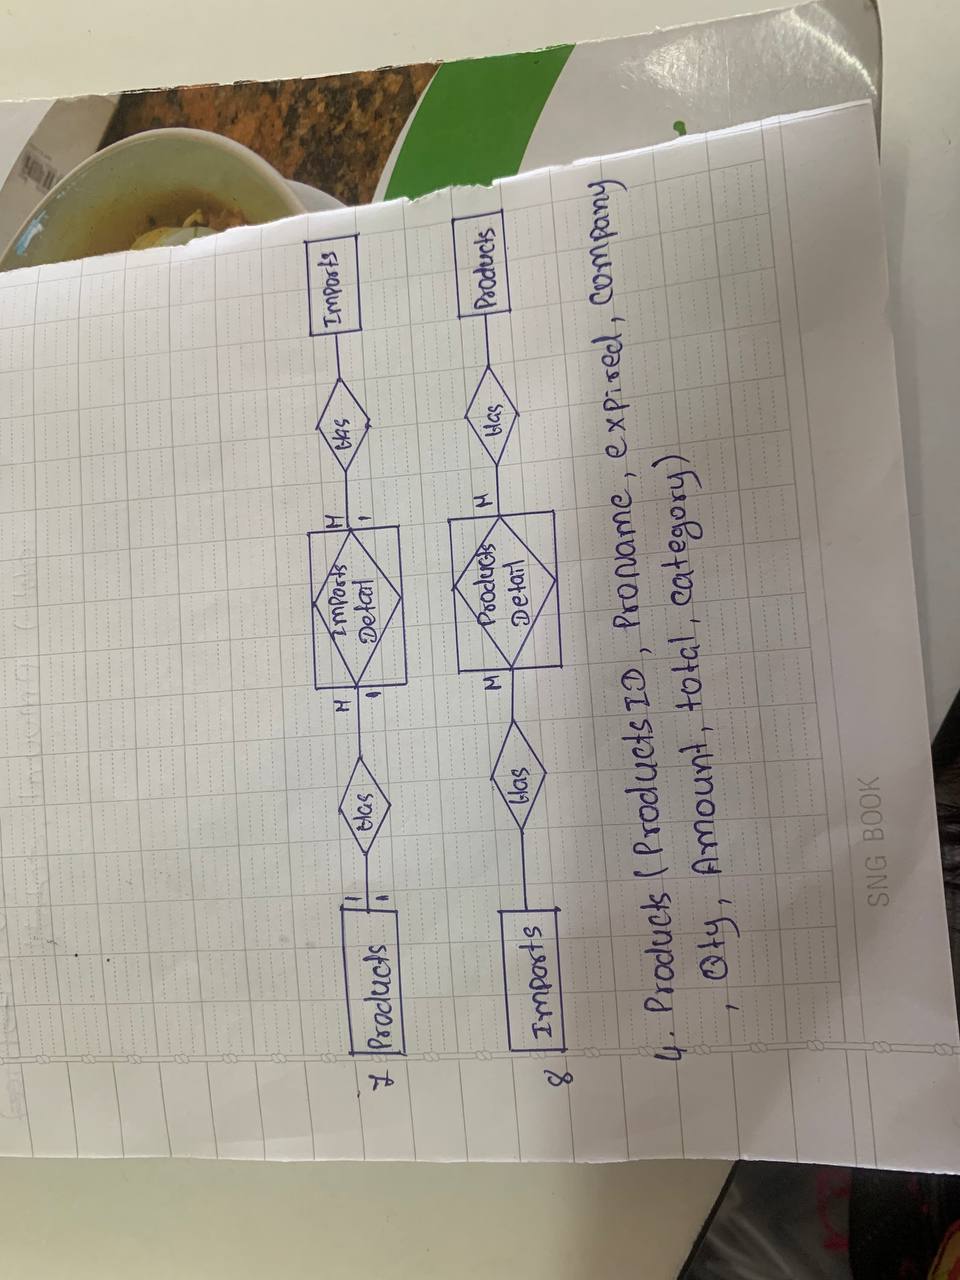 7 Products 1 1 Has M 1 Imports Detail M 1 Has Imports
8 Imports Has M Products Detail M Has Products
4. Products (Products ID, ProName, expired, company
, Qty, Amount, total, category)
SNG BOOK